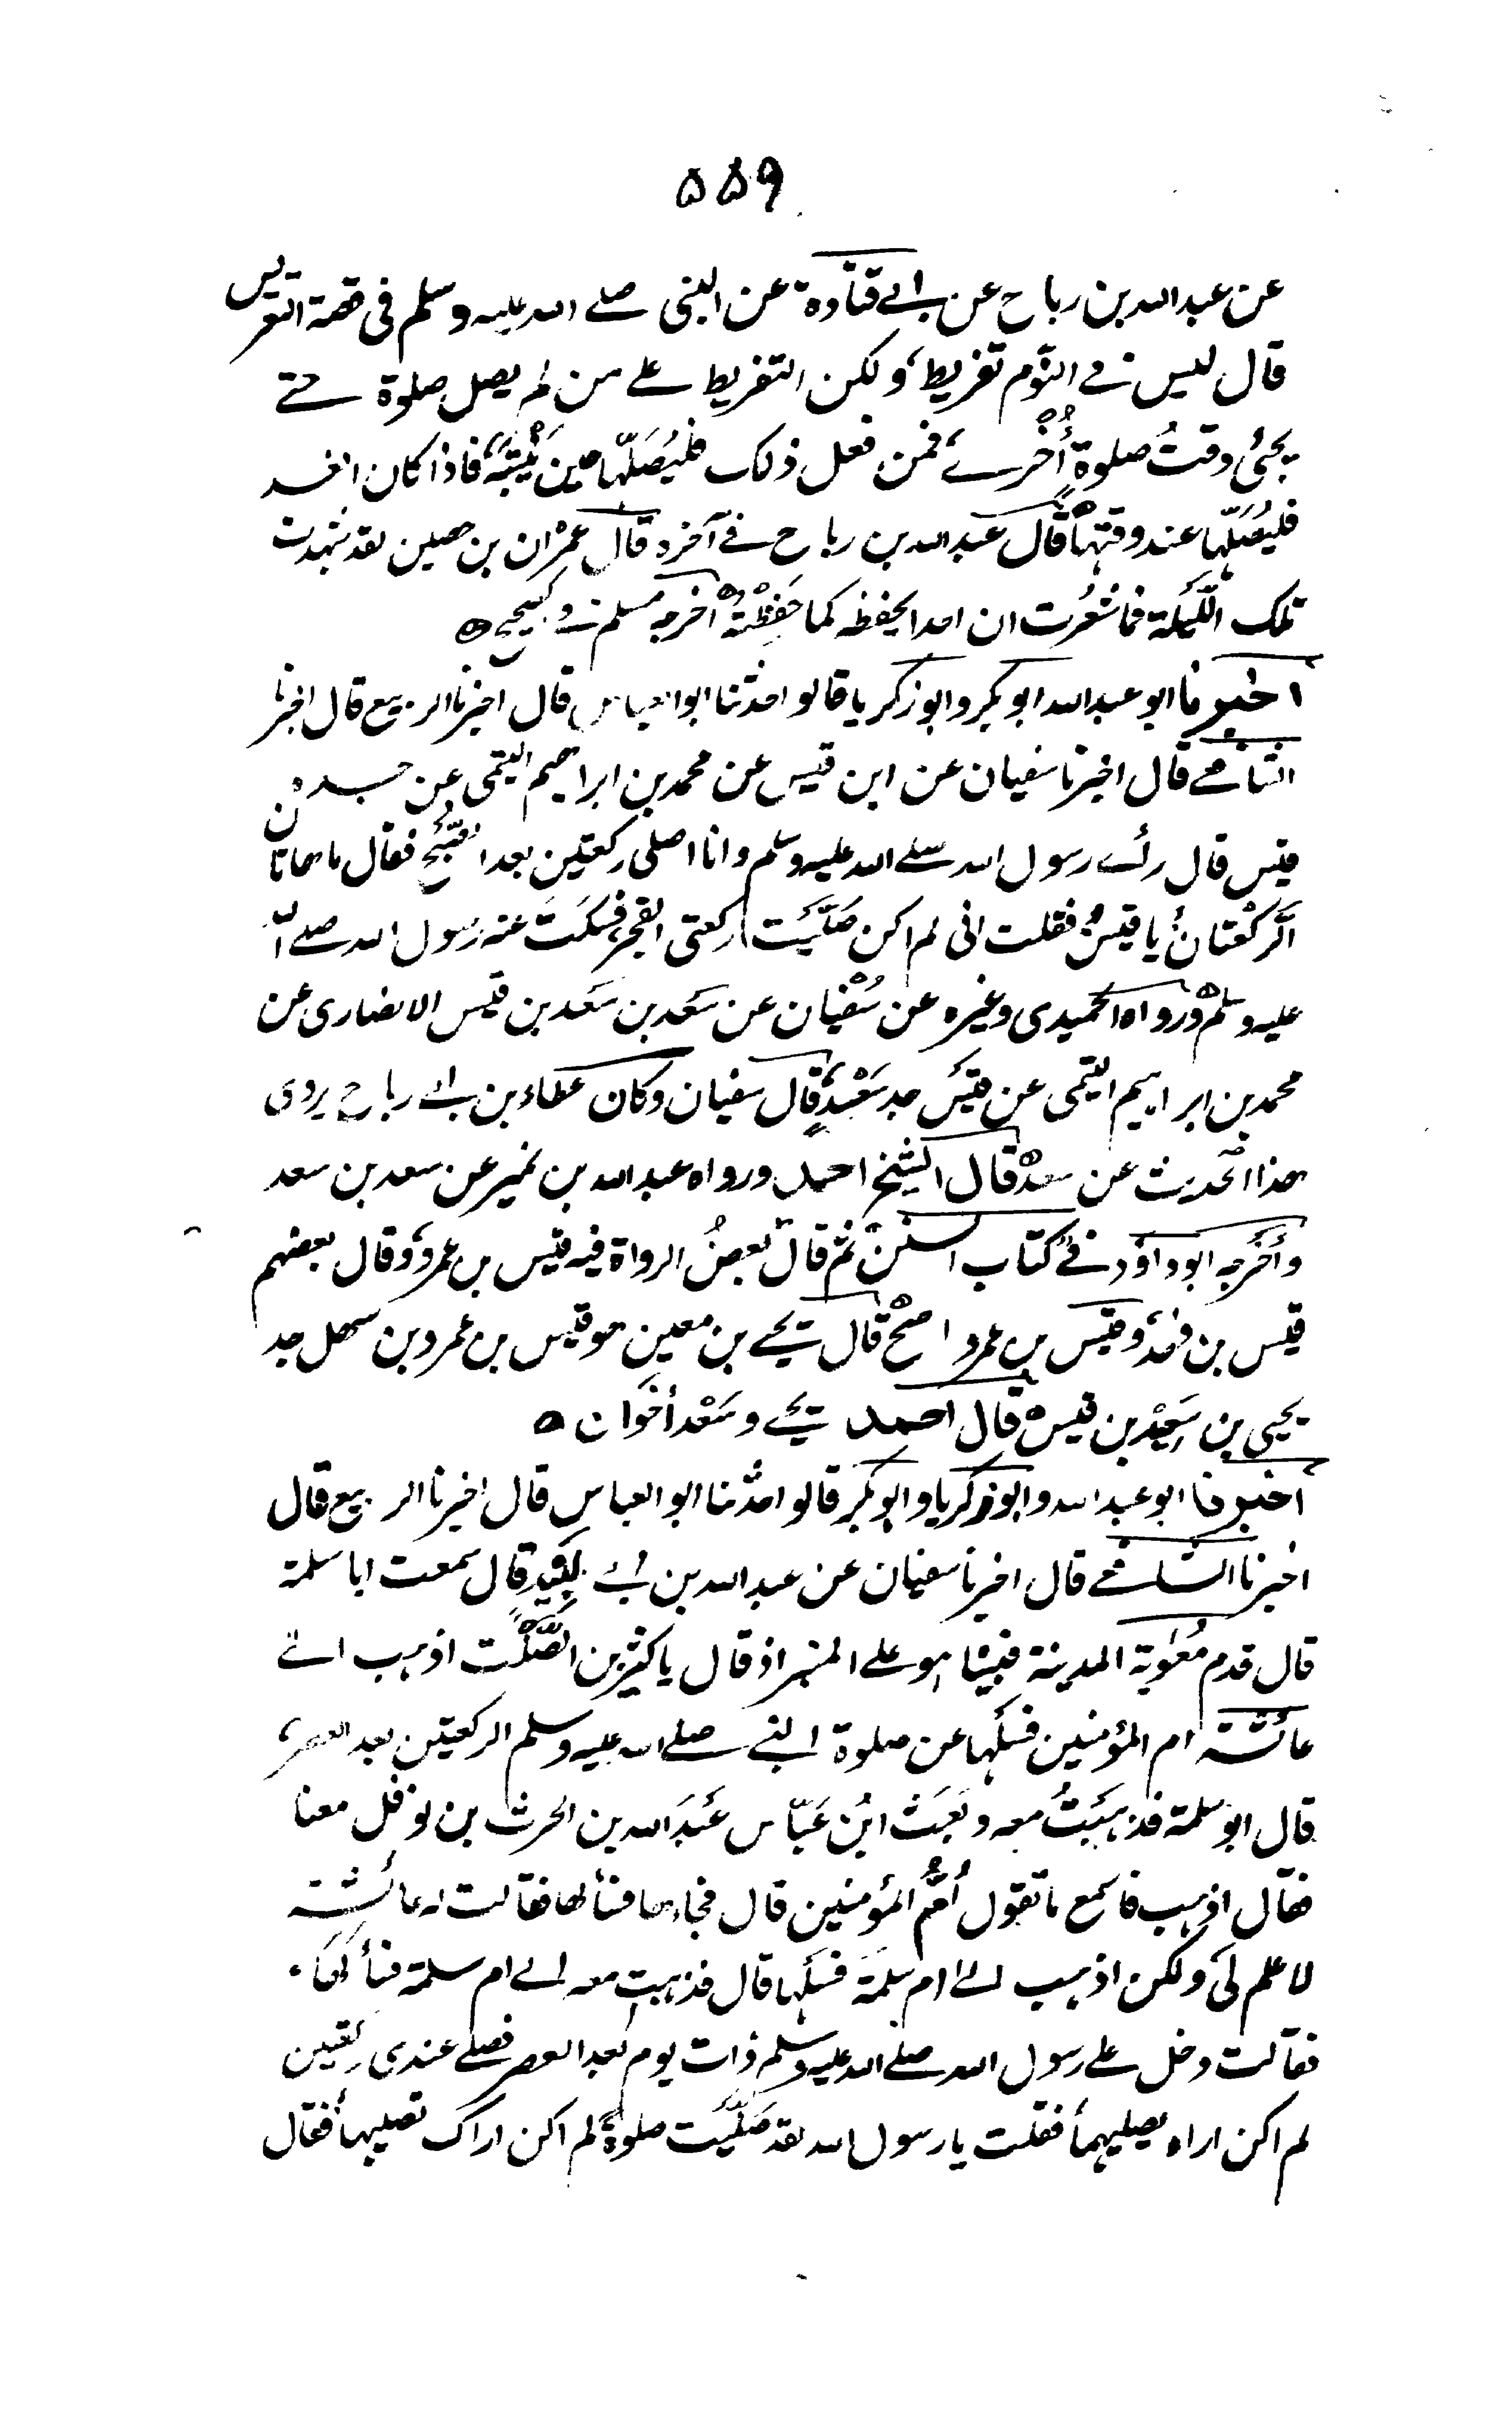 ۵۵۹
عن عبد الله بن رباح عن ابے قتادة عن النبی صلے الله علیه وسلم فی قصة التعریس
قال لیس فے النوم تفریط ولکن التفریط علے من لم یصل صلوة حتے
یجئ وقتُ صلوة أُخْرے، فمن فعل ذلک فلیُصَلِّها حین یَنْتَبِهُ، فاذا کان الغد
فلیُصَلِّها عند وقتها قال عبد الله بن رباح فے آخره قال عمران بن حصین لقد شهدت
تلک اللَّیلة فما شعُرت ان احدا یحفظه کما حَفِظْتُهُ اخرجه مسلم فے الصحیح ○
اخبرنا ابو عبد الله ابو بکر وابو زکریا قالوا حدثنا ابو العباس قال اخبرنا الربیع قال اخبرنا
الشافعے قال اخبرنا سفیان عن ابن قیس عن محمد بن ابراهیم التیمی عن جده
قیس قال رآنے رسول الله صلے الله علیه وسلم وانا اصلی رکعتین بعد الصُّبْح فقال ما هاتان
الرَّکْعتان یا قیسُ فقلت انی لم اکن صَلَّیْت رکعتی الفجر، فسکَتَ عنه رسول الله صلے الله
علیه وسلم ورواه الحمیدی وغیره عن سُفْیان عن سَعْد بن سَعْد بن قیس الانصاری عن
محمد بن ابراهیم التیمی عن قیْس جد سَعْدٍ، قال سفیان وکان عطاء بن ابے رباح یروی
هذا الحدیث عن سعد قال الشیخ احمد ورواه عبد الله بن نمیر عن سعد بن سعد
وأخرجه ابو داؤد فے کتاب السنن ثم قال بعضُ الرواة فیه قیس بن عمرو، وقال بعضهم
قیس بن قهد، وقیْس بن عمرو اصح قال یحیے بن معین هو قیس بن عمرو بن سهل جد
یحیی بن سَعِیْد بن قیس قال احمد یحیے وسَعْد أخَوان ○
اخبرنا ابو عبد الله وابو زکریا وابو بکر قالوا حدثنا ابو العباس قال اخبرنا الربیع قال
اخبرنا الشافعے قال اخبرنا سفیان عن عبد الله بن ابے لَبِیْدٍ قال سمعت ابا سلمة
قال قدم معٰویة المدینة فبینا هو علی المنبر اذ قال یا کثیر بن الصَّلْت اذهب الے
عائشة ام المؤمنین فسلها عن صلوة النبے صلے الله علیه وسلم الرکعتین بعد العصر،
قال ابو سلمة فذهبْتُ معه وبَعَثَ ابْن عَبّاس عَبْدَ الله بن الحرث بن نوفل معنا
فقال اذهب فاسمع ما تقول أُمُّ المؤمنین قال فجاءها فسألها فقالت له عائشة
لا علم لی ولکن اذهب الے ام سَلَمَة فسلها قال فذهبت معه الے ام سلمة فسألها،
فقالت دخل علے رسول الله صلے الله علیه وسلم ذات یوم بعد العصر فصلے عندی رکعتین
لم اکن اراه یصلیهما فقلت یا رسول الله لقد صَلَّیْت صلوةً لم اکن اراک تصلیها فقال